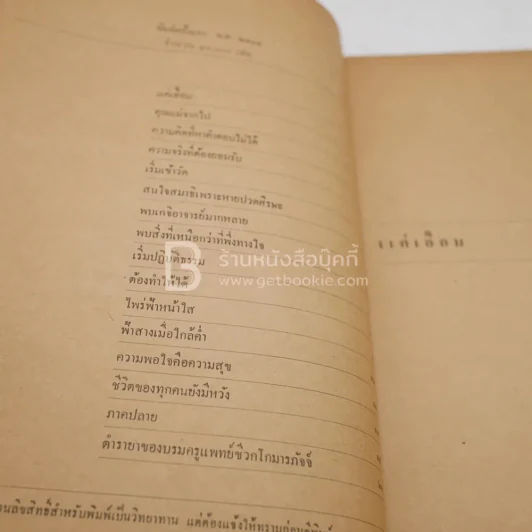 พิมพ์ครั้งแรก
แด่เอื้อม
คุณแม่จากไป
ความคิดที่หาคำตอบไม่ได้
ความจริงที่ต้องยอมรับ
เริ่มเข้าวัด
สนใจสมาธิเพราะหายปวดศีรษะ
พบเกจิอาจารย์มากหลาย
พบสิ่งที่เหนือกว่าที่พึ่งทางใจ
เริ่มปฏิบัติธรรม
ต้องทำให้ได้
ไพร่ฟ้าหน้าใส
ฟ้าสางเมื่อใกล้ค่ำ
ความพอใจคือความสุข
ชีวิตของทุกคนยังมีหวัง
ภาคปลาย
ตำรายาของบรมครูแพทย์ชีวกโกมารภัจจ์
ลิขสิทธิ์สำหรับพิมพ์เป็นวิทยาทาน แต่ต้องแจ้งให้ทราบก่อน
แด่เอื้อม
B ร้านหนังสือบุ๊คกี้
www.getbookie.com